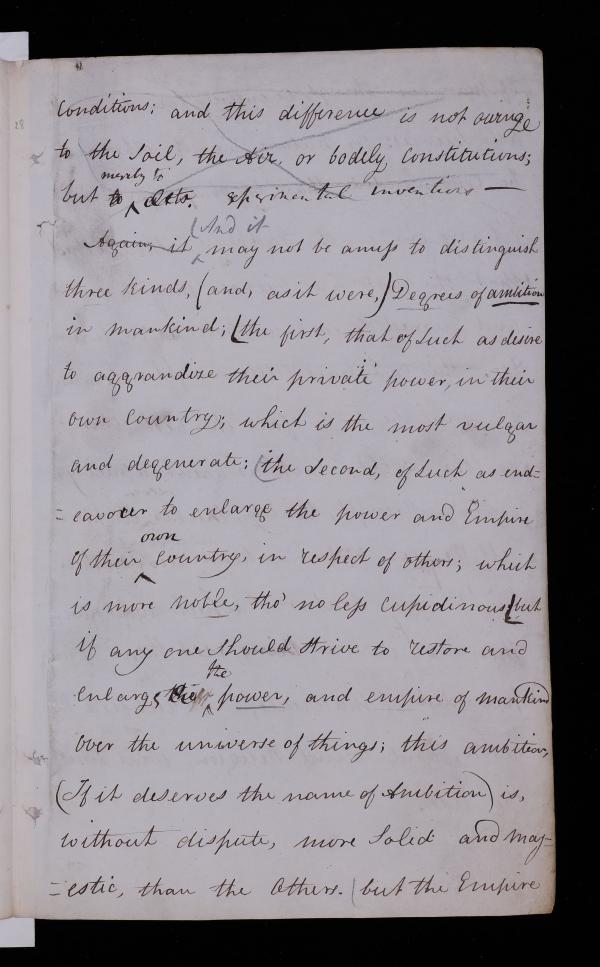 Conditions; and this difference is not owing
to the Soil, the Air, or bodily Constitutions;
merely to
but to Acts, experimental inventions —
And it
Again, it may not be amiss to distinguish
three kinds, (and, as it were,) Degrees of ambition
in mankind; (the first, that of Such as desire
to aggrandize their private power, in their
own Country; which is the most vulgar
and degenerate; (the Second, of Such as end=
=eavour to enlarge the power and Empire
own
of their Country, in respect of others; which
is more noble, tho' no less Cupidinous; (but
if any one Should strive to restore and
the
enlarge the power, and empire of mankind
over the universe of things; this ambition,
(If it deserves the name of Ambition) is,
without dispute, more Solid and maj=
=estic, than the Others. (but the Empire